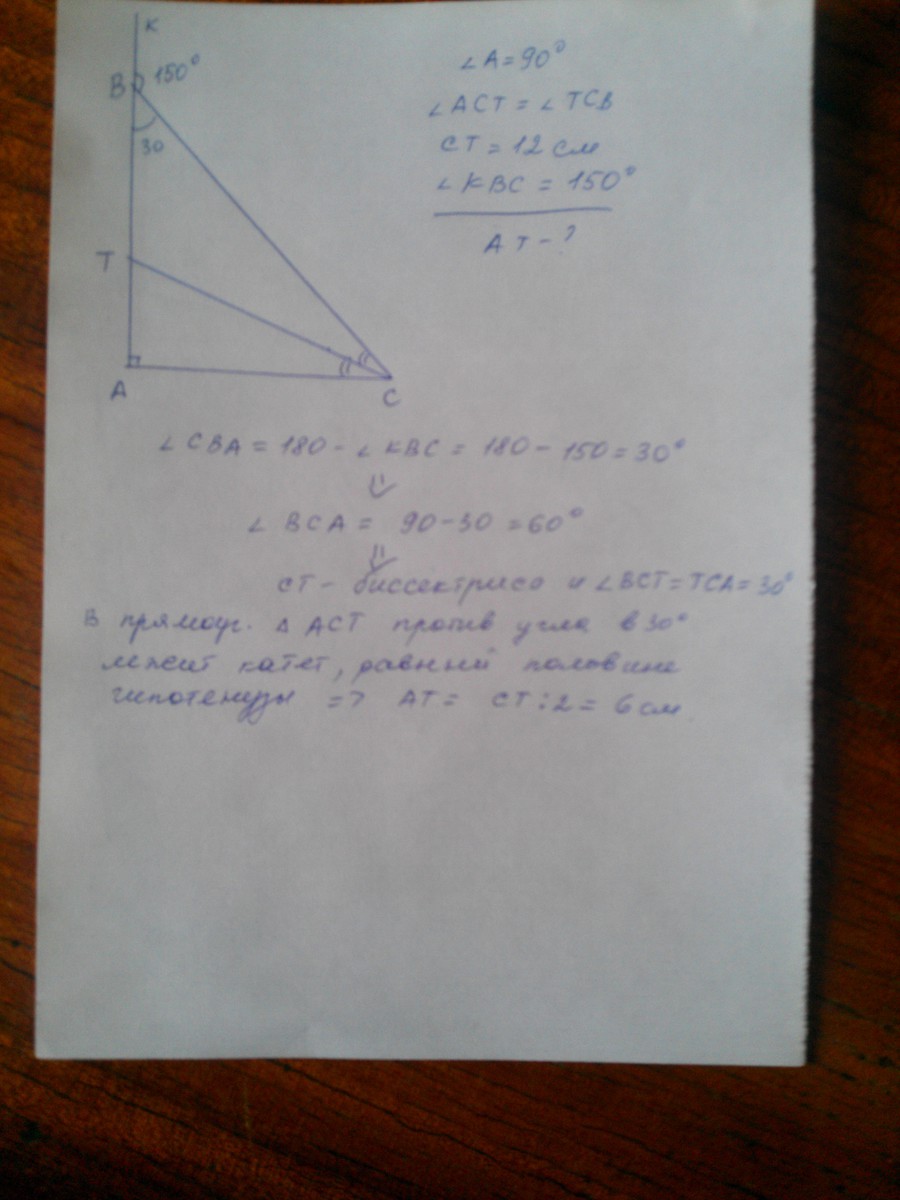 K
B 150°
30
T
A
C
∠A = 90°
∠ACT = ∠TCB
CT = 12 см
∠KBC = 150°
AT - ?
∠CBA = 180 - ∠KBC = 180 - 150 = 30°
⇓
∠BCA = 90 - 30 = 60°
⇓
CT - биссектриса и ∠BCT = TCA = 30°
В прямоуг. Δ ACT против угла в 30°
лежит катет, равный половине
гипотенузы => AT = CT : 2 = 6 см